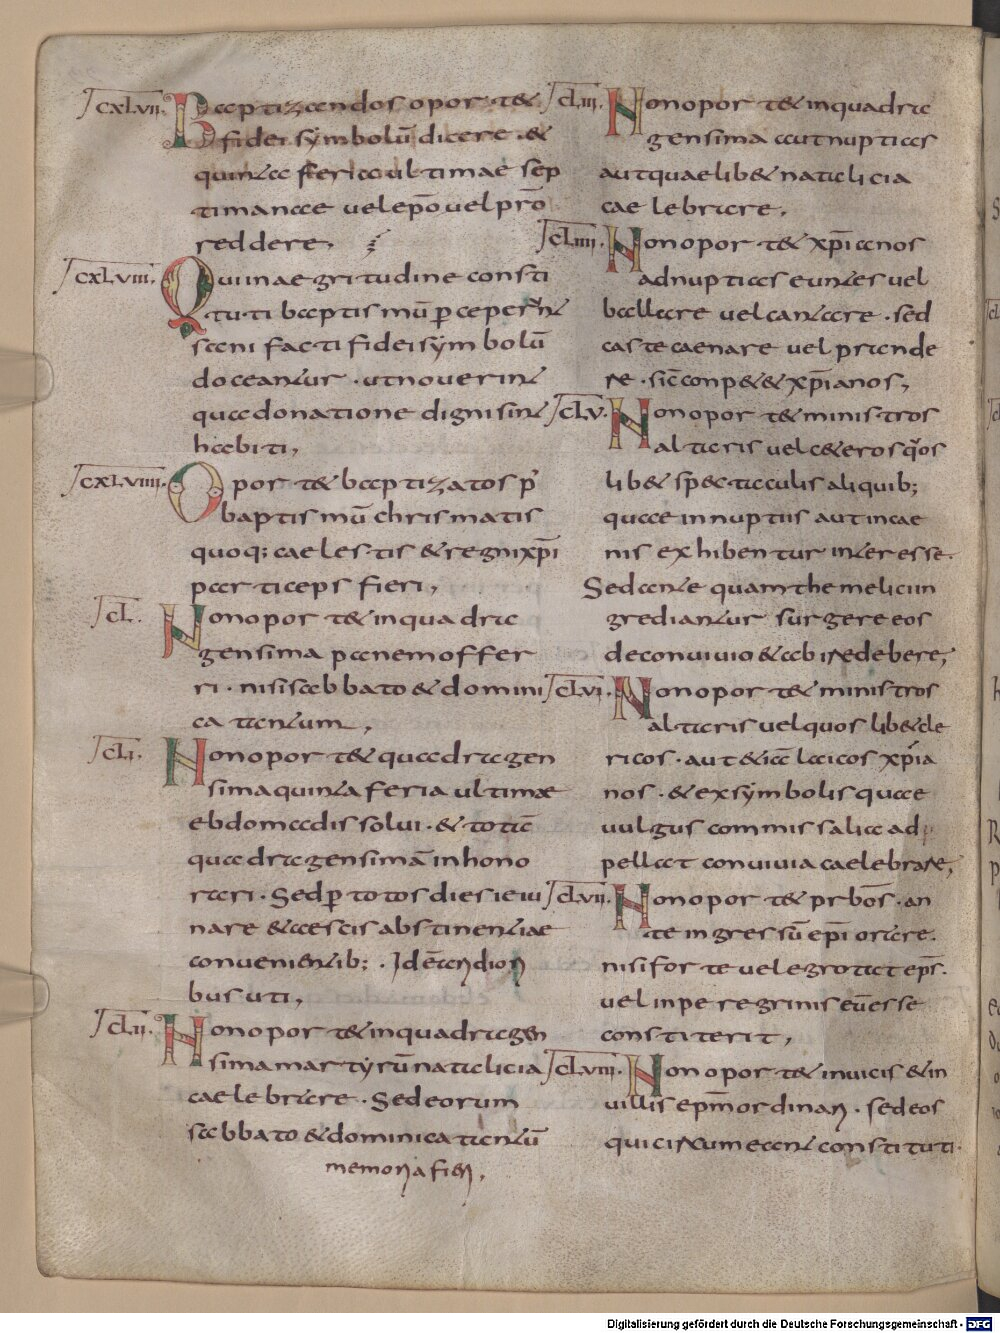 CXLVII. Baptizandos oportet
fidei symbolū dicere · &
quinta feria ultimae sep
timanae uel ep̄o uel pr̄o
reddere,
CXLVIII. Qui in aegritudine consti
tuti baptismū p̱ceperint
sani facti fidei symbolū
doceantur · ut nouerint
qua donatione digni sint
habiti,
CXLVIIII. Oportet baptizatos p'
baptismū chrismatis
quoq; caelestis & regni xp̄i
participes fieri,
CL. Non oportet in quadra
gensima panem offer
ri · nisi sabbato & domini
ca tantum,
CLI. Non oportet quadragen
sima quinta feria ultimae
ebdomadis solui · & totā
quadragensimā inhono
rari · Sed p̱ totos dies ieiu
nare & aescis abstinentiae
conuenientib; · Id ē aridiori
bus uti,
CLII. Non oportet in quadragen
sima martyrū natalicia
caelebrare · Sed eorum
sabbato & dominica tantū
memoria fieri,
CLIII. Non oportet in quadra
gensima aut nuptias
aut quaelibet natalicia
caelebrare,
CLIIII. Non oportet xp̄ianos
ad nuptias euntes uel
ballare uel cantare · sed
caste caenare uel prande
re · sic̄ conpetet xp̄ianos,
CLV. Non oportet ministros
altaris uel caeteros q̊s
libet spectaculis aliquib;
quae in nuptiis aut in cae
nis exhibentur interesse.
Sed ante quam themelici in
grediantur surgere eos
de conuiuio & abire debere,
CLVI. Non oportet ministros
altaris uel quoslibet cle
ricos · aut etiā laicos xp̄ia
nos · & ex symbolis quae
uulgus commissalia ad
pellat conuiuia caelebrare,
CLVII. Non oportet prbōs · an
te ingressū ep̄i orare.
nisi forte uel egrotat ep̄s.
uel in peregrinis eū esse
constiterit,
CLVIII. Non oportet in uicis & in
uillis ep̄m ordinari · sed eos
qui circumeant constituti·
Digitalisierung gefördert durch die Deutsche Forschungsgemeinschaft - DFG